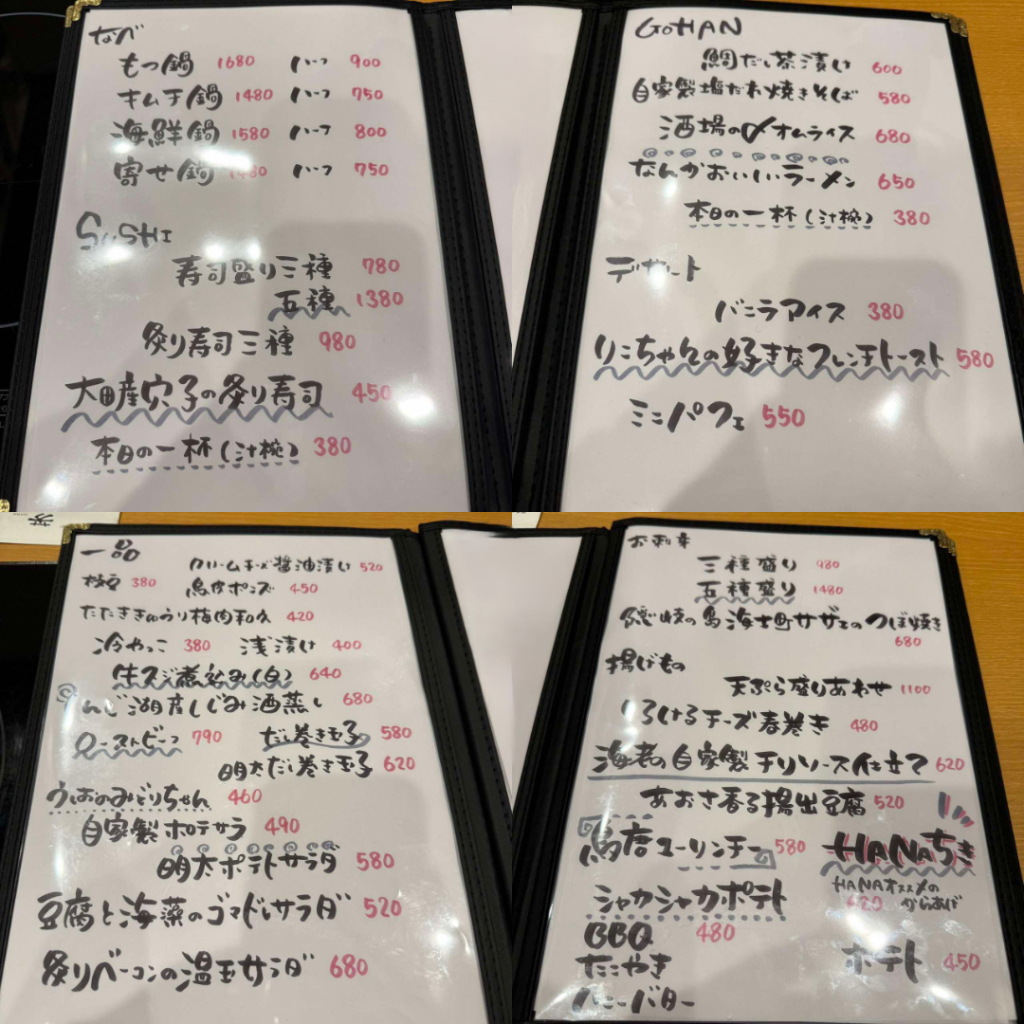 なべ
もつ鍋 1680 ハーフ 900
キムチ鍋 1480 ハーフ 750
海鮮鍋 1580 ハーフ 800
寄せ鍋 1480 ハーフ 750
SUSHI
寿司盛り三種 780
五種 1380
炙り寿司三種 980
大田産穴子の炙り寿司 450
本日の一杯(汁椀) 380
GOHAN
鯛だし茶漬け 600
自家製塩だれ焼きそば 580
酒場の〆オムライス 680
なんかおいしいラーメン 650
本日の一杯(汁椀) 380
デザート
バニラアイス 380
りこちゃんの好きなフレンチトースト 580
ミニパフェ 550
一品
クリームチーズ醤油漬け 520
枝豆 380 鳥皮ポン酢 450
たたききゅうり梅肉和え 420
冷やっこ 380 浅漬け 400
牛スジ煮込み(白) 640
しんじ湖産しじみ酒蒸し 680
ローストビーフ 790 だし巻き玉子 580
明太だし巻き玉子 620
うしおのみどりちゃん 460
自家製ポテサラ 490
明太ポテトサラダ 580
豆腐と海藻のゴマドレサラダ 520
炙りベーコンの温玉サラダ 680
お刺身
三種盛り 980
五種盛り 1480
隠岐の島海士町サザエのつぼ焼き
680
揚げもの
天ぷら盛りあわせ 1100
とろけるチーズ春巻き 480
海老の自家製チリソース仕立て 620
あおさ香る揚出豆腐 520
鳥唐ユーリンチー 580 HANAちき
HANAオススメの
からあげ
620
シャカシャカポテト
480
BBQ
たこやき
ハニーバター
ポテト 450